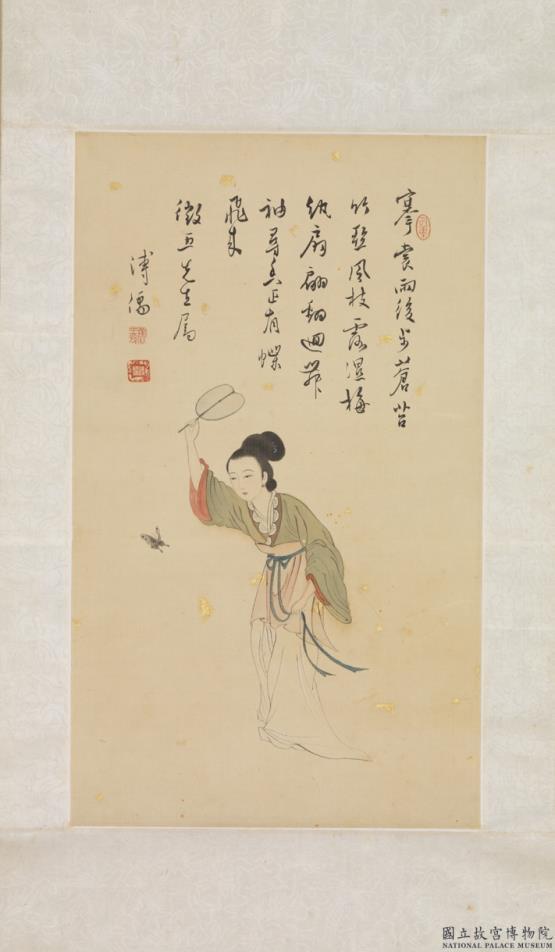 搴裳雨後步蒼苔
竹壓風枝露濕梅
紈扇翩翻迴舞
袖尋香正有蝶
飛來
徵五先生屬
溥儒
國立故宮博物院
NATIONAL PALACE MUSEUM